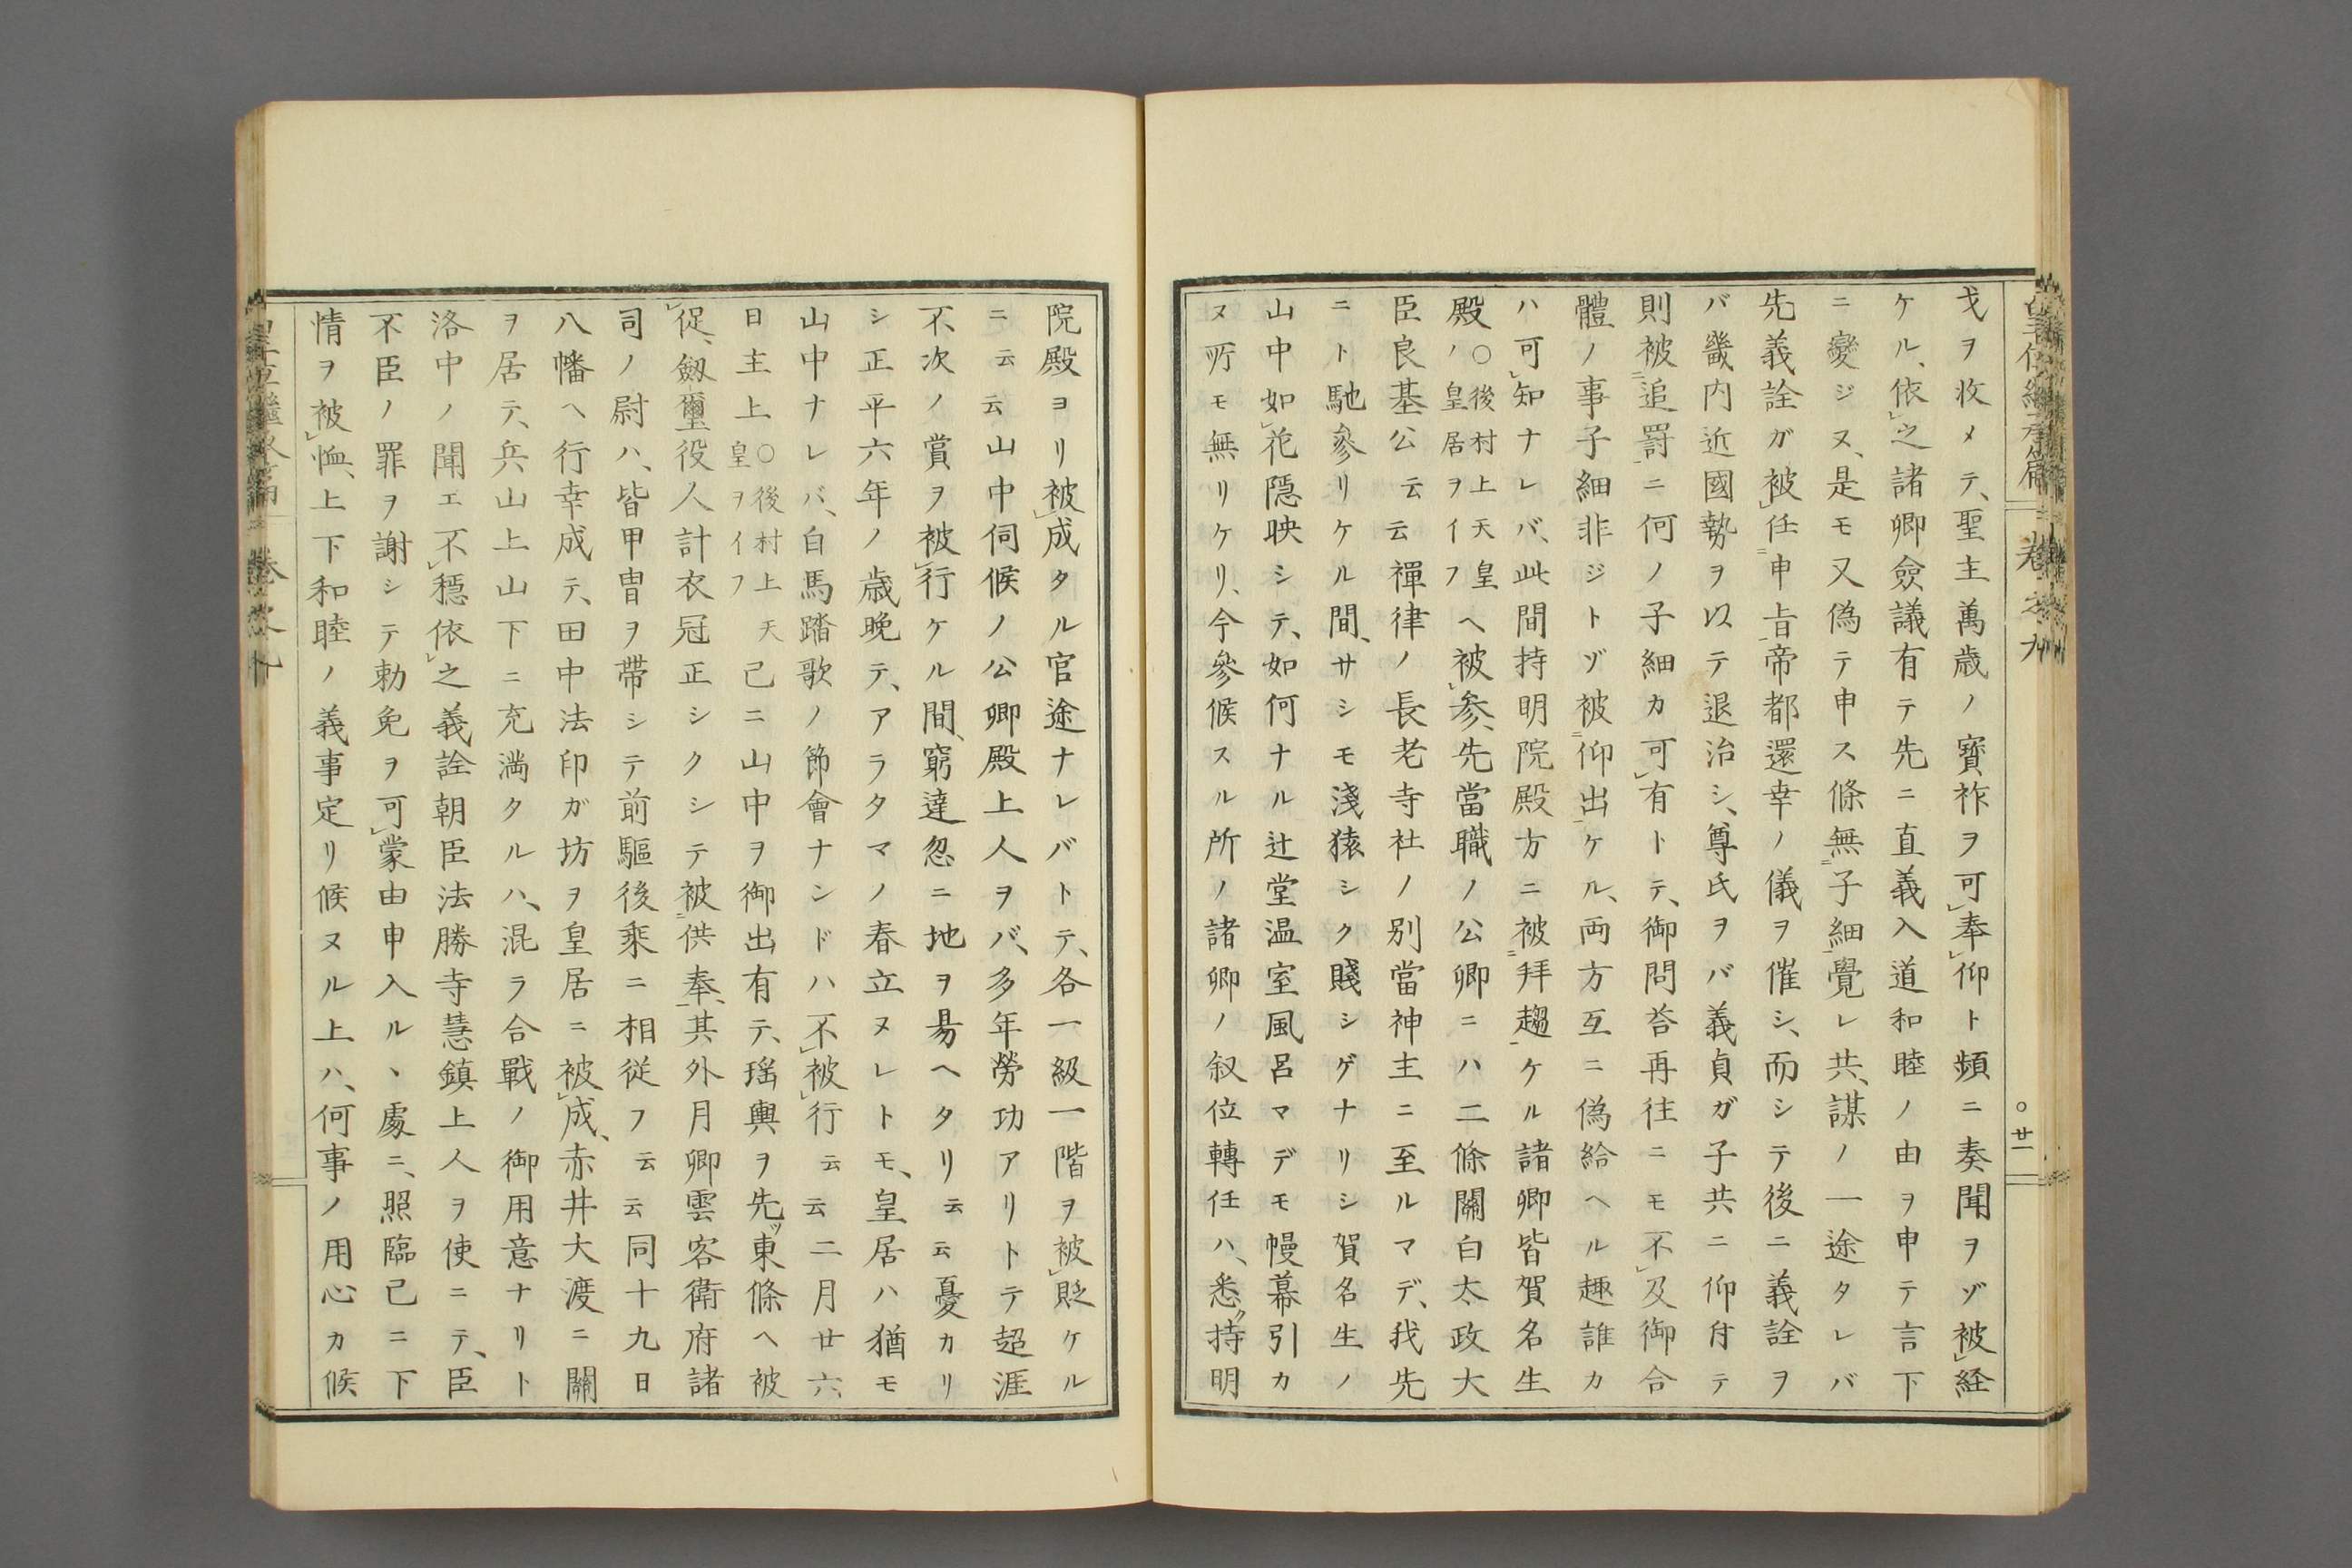 戈ヲ收メテ、聖主萬歳ノ寳祚ヲ可奉仰ト頻ニ奏聞ヲゾ被経
ケル、依之諸卿僉議有テ先ニ直義入道和睦ノ由ヲ申テ言下
ニ變ジヌ、是モ又偽テ申ス條無子細覺レ共、謀ノ一途タレバ
先義詮ガ被任申旨帝都還幸ノ儀ヲ催シ、而シテ後ニ義詮ヲ
バ畿内近國勢ヲ以テ退治シ、尊氏ヲバ義貞ガ子共ニ仰付テ
則被追罸ニ何ノ子細カ可有トテ、御問荅再往ニモ不及御合
體ノ事子細非ジトゾ被仰出ケル、両方互ニ偽給ヘル趣誰カ
ハ可知ナレバ、此間持明院殿方ニ被拜趨ケル諸卿皆賀名生
殿〇後村上天皇ノ皇居ヲイフヘ被参、先當職ノ公卿ニハ二條關白太政大
臣良基公云云禪律ノ長老寺社ノ別當神主ニ至ルマデ、我先
ニト馳參リケル間、サシモ淺猿シク賤シゲナリシ賀名生ノ
山中如花隱映シテ、如何ナル辻堂温室風呂マデモ幔幕引カ
ヌ所モ無リケリ、今參候スル所ノ諸卿ノ叙位轉任ハ、悉ク持明
卷之九
〇廿一
院殿ヨリ被成タル官途ナレバトテ、各一級一階ヲ被貶ケル
ニ云云山中伺候ノ公卿殿上人ヲバ、多年勞功アリトテ超涯
不次ノ賞ヲ被行ケル間、窮達忽ニ地ヲ易ヘタリ云云憂カリ
シ正平六年ノ歳晩テ、アラタマノ春立ヌレトモ、皇居ハ猶モ
山中ナレバ、白馬踏歌ノ節會ナンドハ不被行云云二月廿六
日主上〇後村上天皇ヲイフ已ニ山中ヲ御出有テ、瑶輿ヲ先ッ東條ヘ被
促、劔璽役人計衣冠正シクシテ被供奉、其外月卿雲客衛府諸
司ノ尉ハ、皆甲冑ヲ帶シテ前驅後乘ニ相従フ云云同十九日
八幡ヘ行幸成テ、田中法印ガ坊ヲ皇居ニ被成、赤井大渡ニ關
ヲ居テ、兵山上山下ニ充満タルハ、混ラ合戰ノ御用意ナリト
洛中ノ聞エ不穏依之義詮朝臣法勝寺慧鎮上人ヲ使ニテ、臣
不臣ノ罪ヲ謝シテ勅免ヲ可蒙由申入ルヽ處ニ、照臨已ニ下
情ヲ被恤、上下和睦ノ義事定リ候ヌル上ハ、何事ノ用心カ候